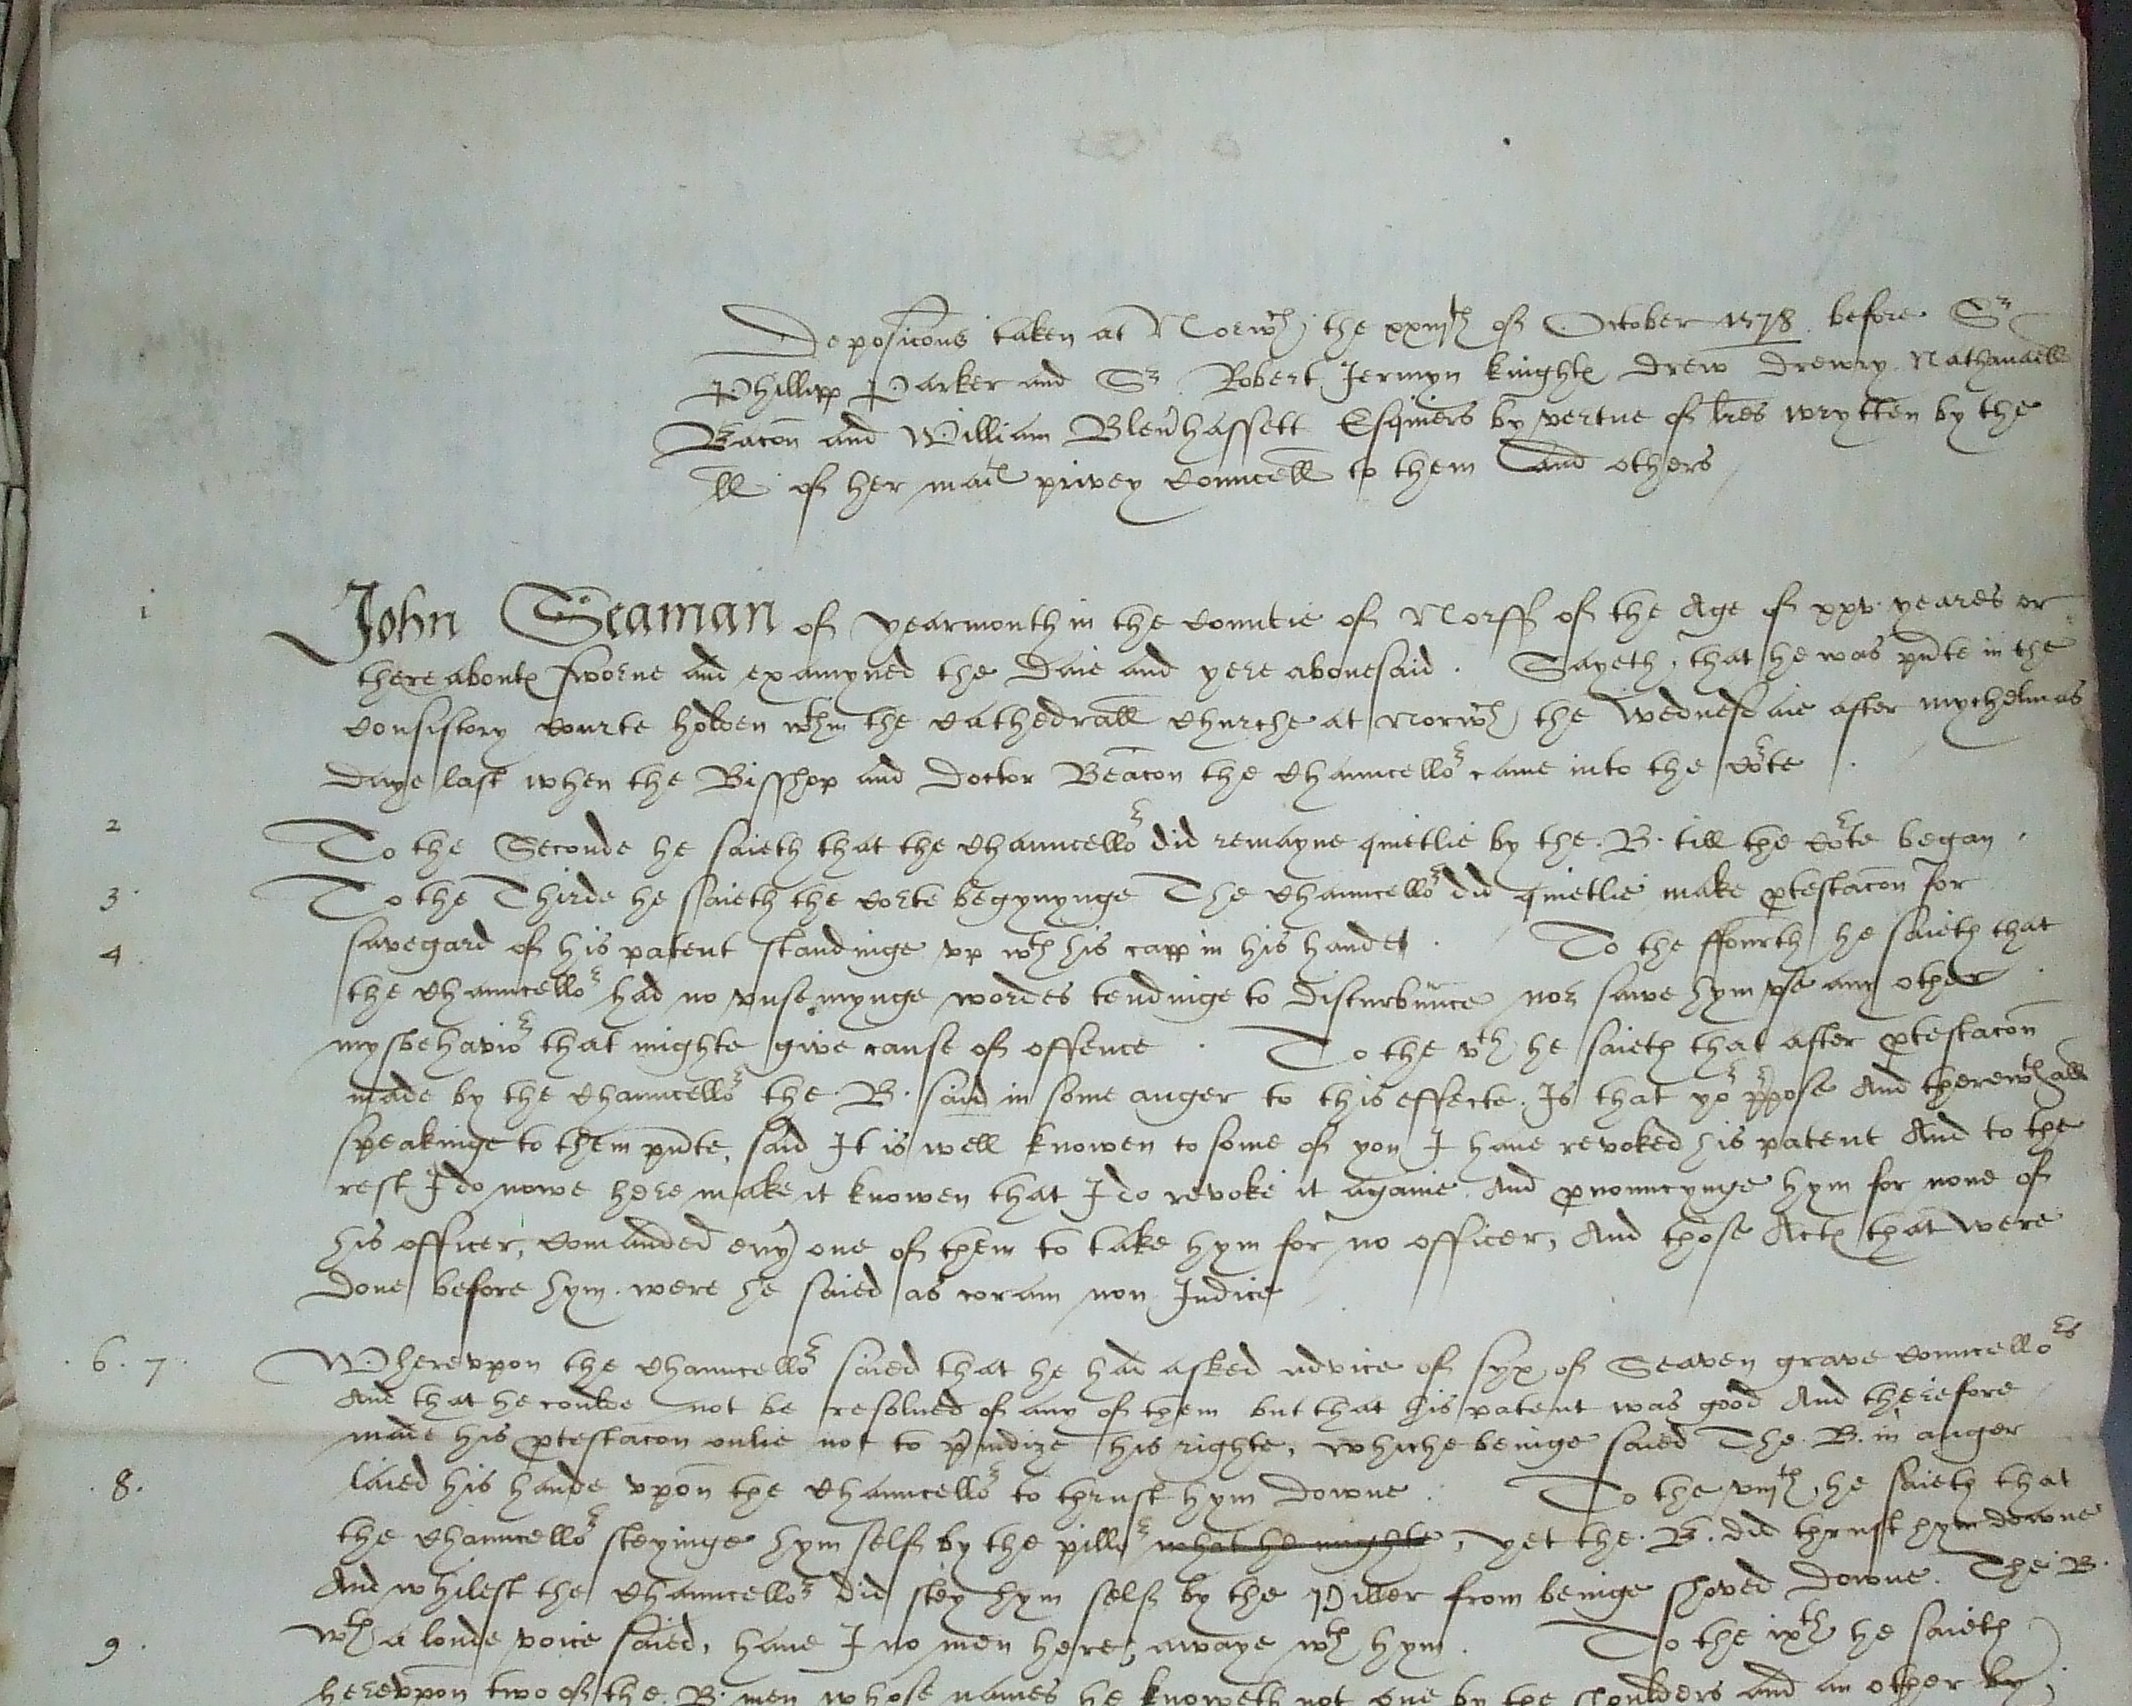 Deposicons taken at Norwch the xxiijth of October 1578 before Sr
Phillipp Parker and Sr Robert Jermyn knightes Drew Drewry Nathanaell
Bacon and William Blen'hassett Esquiers by vertue of lres wrytten by the
ll of her matis privey Councell to them and others
1 John Seaman of Yearmouth in the Countie of Norff of the Age of xxv yeares or
thereaboutes sworne and examyned the Daie and yere abouesaid . Sayeth, that he was pnte in the
Consistory Courte holden wthin the Cathedrall Churche at Norwch the Wednesdaie after mychelmas
Daye last when the Bisshop and Doctor Beacon the Chauncellor came into the Corte .
2 To the Seconde he saieth that the Chauncellor did remayne quietlie by the .B. till the Corte began .
3 To the Thirde he saieth the Corte begynynge The Chauncellor did quietlie make ptestacon for
4 savegard of his patent standinge vp wth his capp in his handes . To the ffourth he saieth that
the Chauncellor had no vnsemynge wordes tendinge to Disturbunce nor sawe hym vse any other
mysbehavior that mighte give cause of offence . To the vth he saieth that after ptestacon
made by the Chauncellor the .B. said in some anger to this effecte . Is that yor ppose And therewthall
speakinge to them pnte, said It is well knowen to some of you I haue revoked his patent And to the
rest I do nowe here make it knowen that I do revoke it againe. And pnouncynge hym for none of
his officer, Comanded euy one of them to take hym for no officer, And those Actes that were
Done before hym were he saied as coram non Judice
6 . 7 Wherevpon the Chauncellor saied that he had asked advice of syx of Seaven grave Councellors
And that he coulde not be resolued of any of them but that his patent was good And therefore
made his ptestacon onlie not to piudize his righte, whiche beinge saied The .B. in anger
8. laied his hande vpon the Chauncellor to thrust hym downe . To the viijth, he saieth that
the Chauncellor steyinge hym self by the pillor what he mighte, yet the .B. did thrust hym downe
And whilest the Chauncellor did stey hym self by the Piller from beinge shoved Downe. The B.
9 . wth a loude voice saied, haue I no men here, awaye wth hym . To the ixth he saieth
herevpon two of the .B. men whose names he knoweth not one by the shoulders and an other by